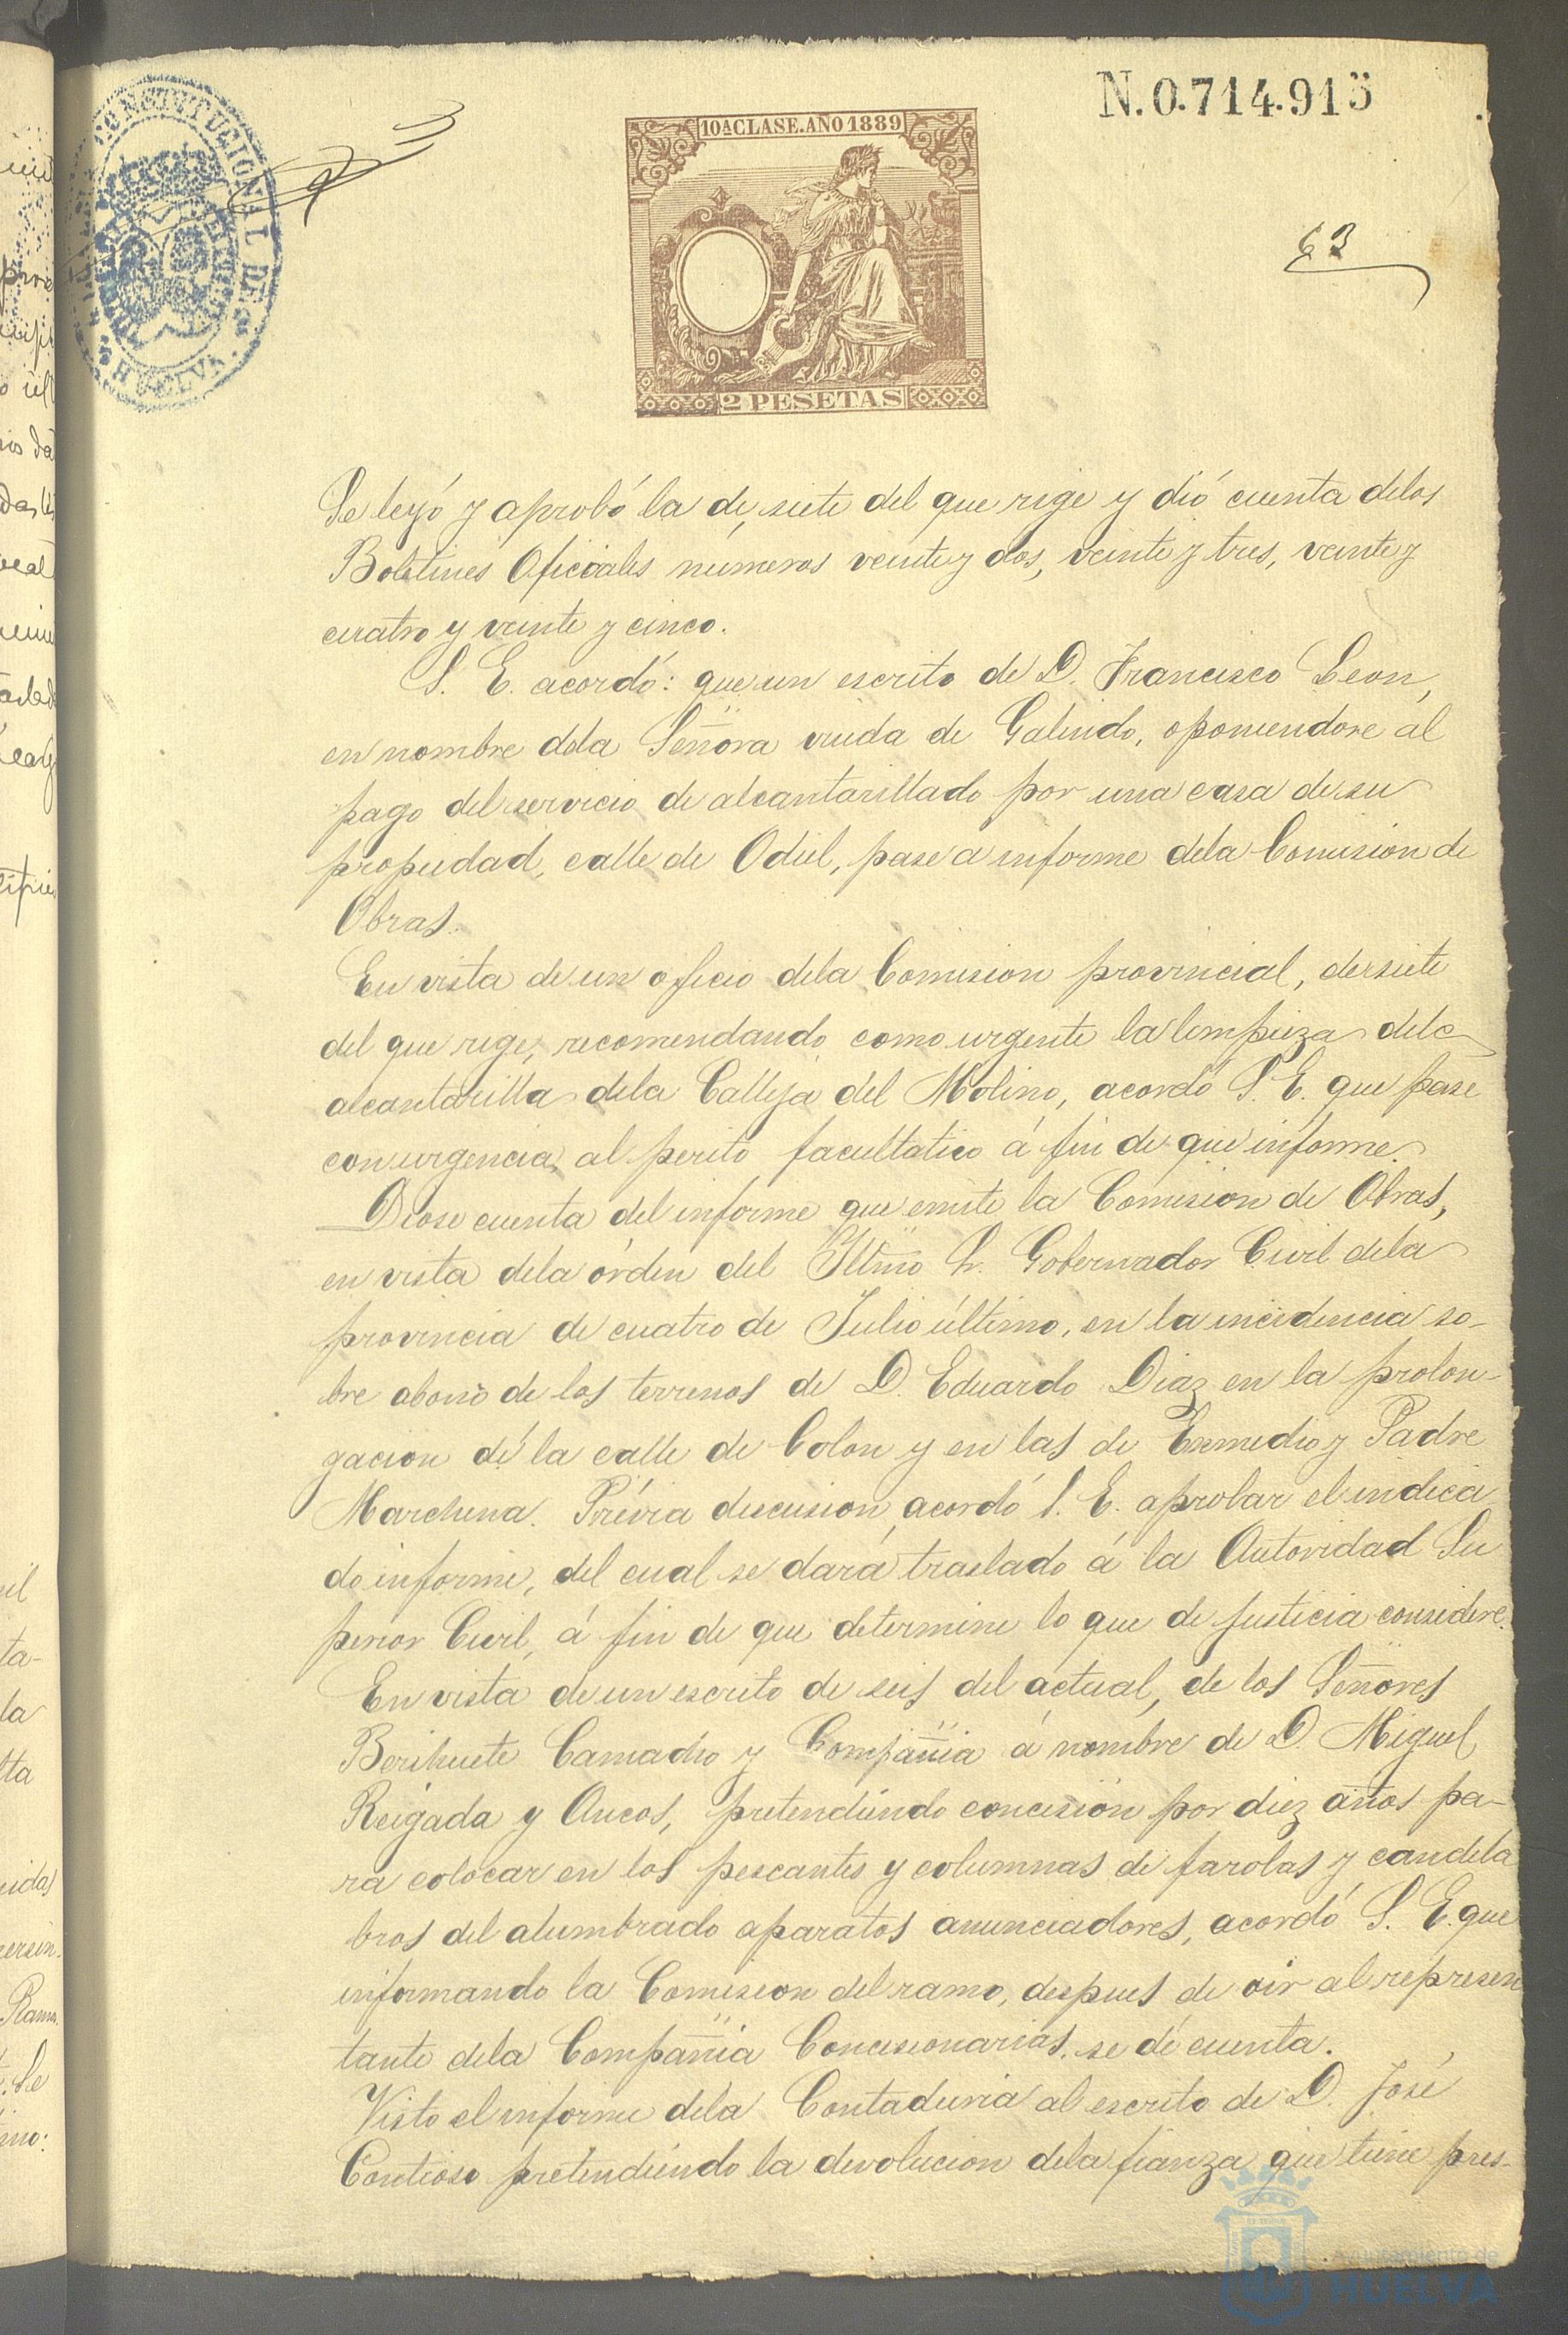 N.0.714.915
10A CLASE. AÑO 1889
CONSTITUCIONAL DE
HUELVA
63
2 PESETAS
Se leyó y aprobó la de siete del que rige y dió cuenta delos
Boletines Oficiales números veinte y dos, veinte y tres, veinte y
cuatro y veinte y cinco.
S. E. acordó: que un escrito de D. Francisco Leon,
en nombre dela Señora viuda de Galindo, oponiendose al
pago del servicio de alcantarillado por una casa de su
propiedad, calle de Odiel, pase a informe dela Comision de
Obras.
En vista de un oficio dela Comision provincial, de siete
del que rige, recomendando como urgente la limpieza dela
alcantarilla dela Calleja del Molino, acordó S. E. que pase
con urgencia, al perito facultativo á fin de que informe.
Diose cuenta del informe que emite la Comision de Obras,
en vista dela órden del Iltmo Sr. Gobernador Civil dela
provincia de cuatro de Julio último, en la incidencia so-
bre abono de los terrenos de D. Eduardo Diaz en la prolon-
gacion de la calle de Colon y en las de Enmedio y Padre
Marchena. Prévia discusion, acordó S. E. aprobar el indica
do informe, del cual se dará traslado á la Autoridad Su
perior Civil, á fin de que determine lo que de justicia considere.
En vista de un escrito de seis del actual, de los Señores
Berihuete Camacho y Compañia á nombre de D. Miguel
Reigada y Aucos, pretendiendo concesion por diez años pa-
ra colocar en los pescantes y columnas de farolas y candela
bros del alumbrado aparatos anunciadores, acordó S. E. que
informando la Comision del ramo, despues de oir al represen
tante dela Compañia Concesionarias, se dé cuenta.
Visto el informe dela Contaduria al escrito de D. José
Contioso pretendiendo la devolucion dela fianza que tiene pres-
Ayuntamiento de
HUELVA